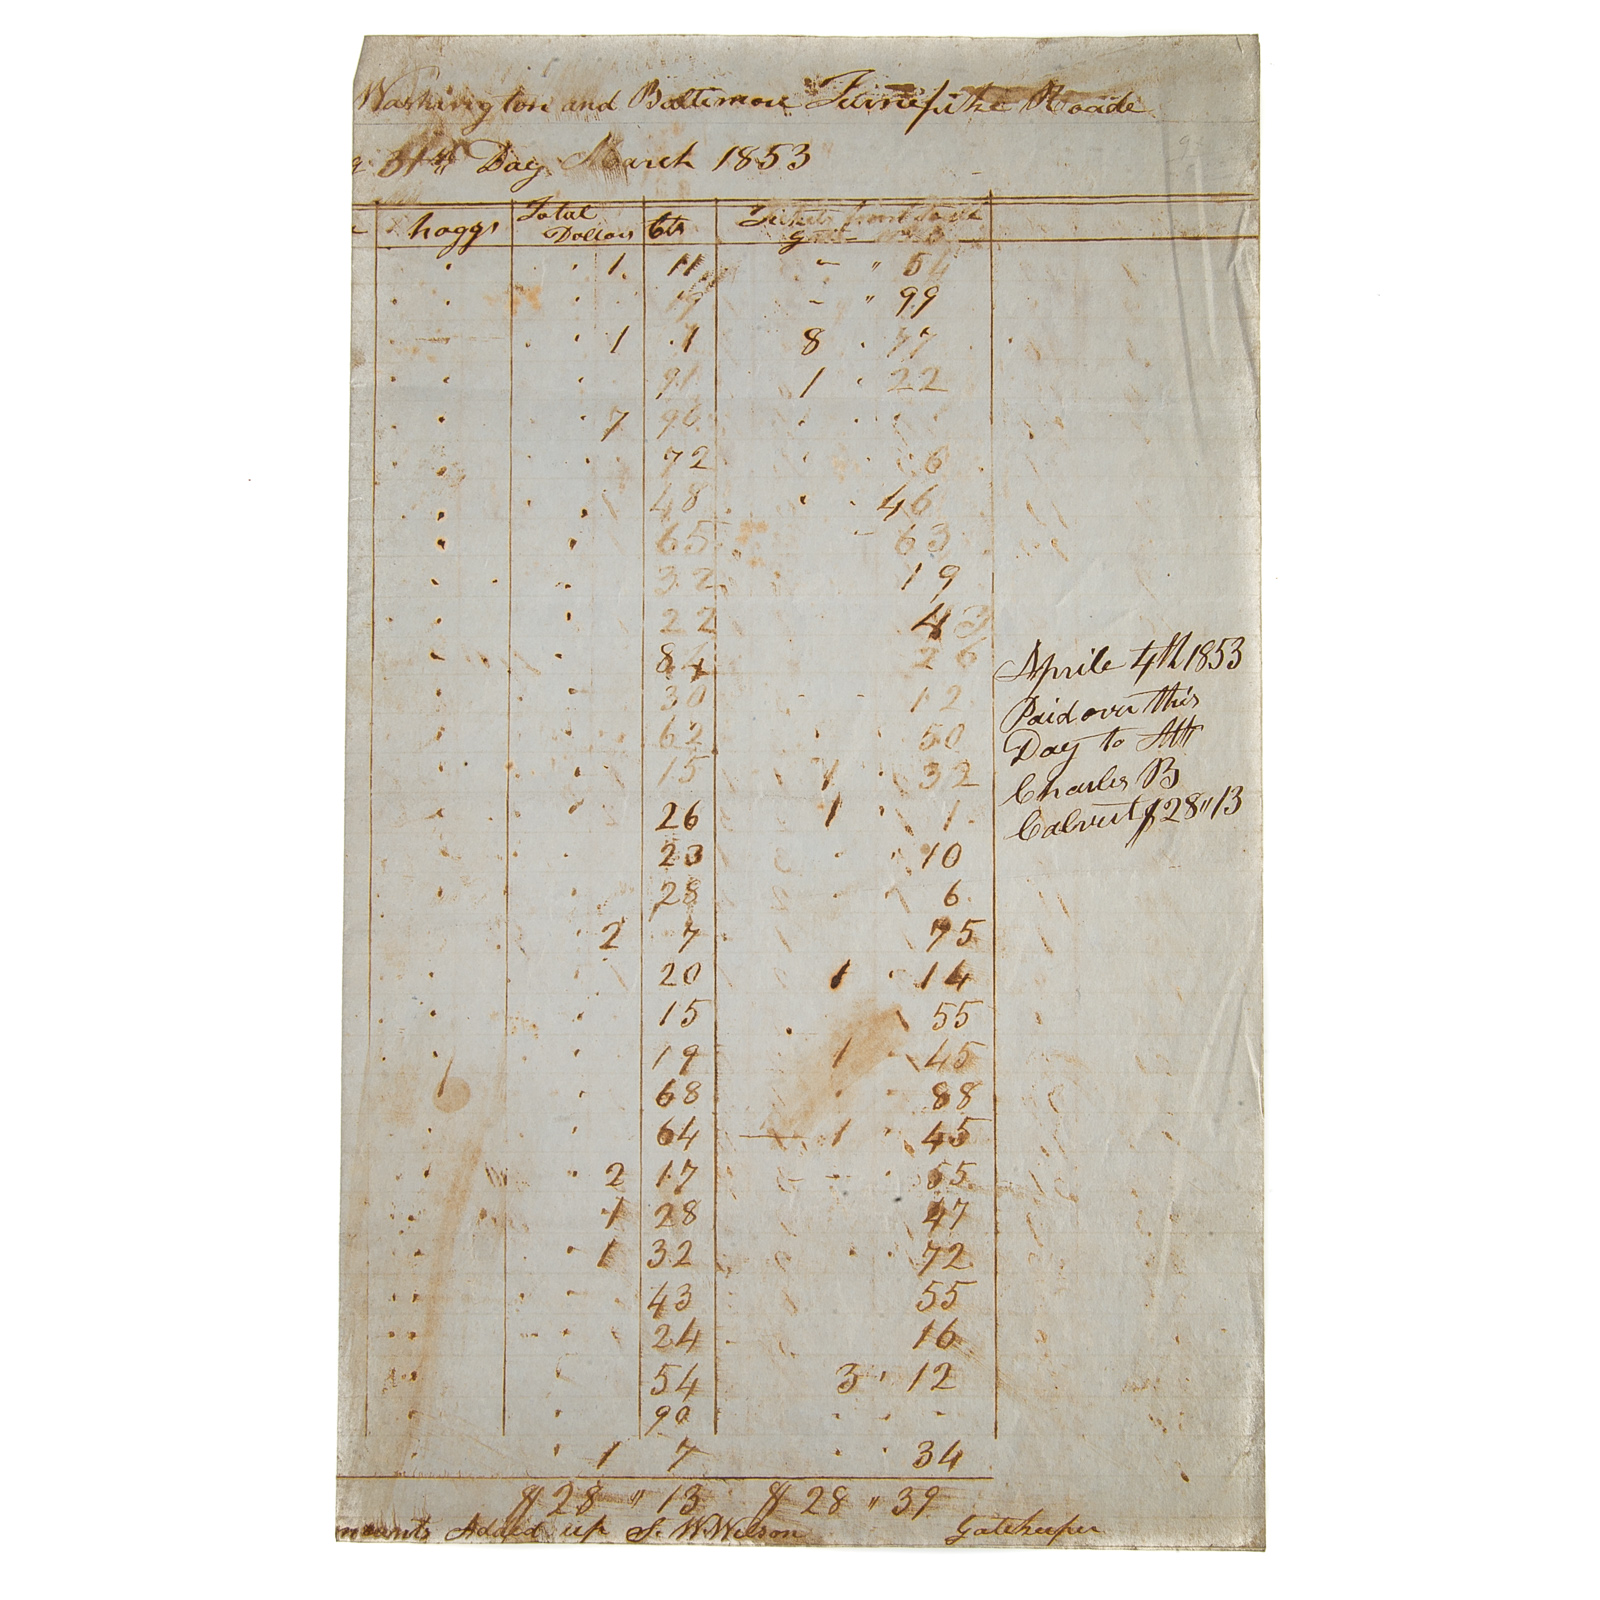 Washington and Baltimore Turnpike Roade
31st Day March 1853
hoggs Total Dollars Cts Tickets
1 11 " 54
19 " 99
1 1 8 77
91 1 22
7 96
72 6
48 46
65 63
32 19
22 43
84 26
30 12
62 50
15 1 32
26 1 1
23 10
28 6
2 7 75
20 1 14
15 55
19 1 45
68 88
64 1 45
2 17 55
1 28 47
1 32 72
43 55
24 16
54 3 12
90
1 7 34
$28 " 13 $28 " 39
Added up S. W. Wilson Gatekeeper
Aprile 4th 1853
Paid over this
Day to
Charles B
Calvert $28"13